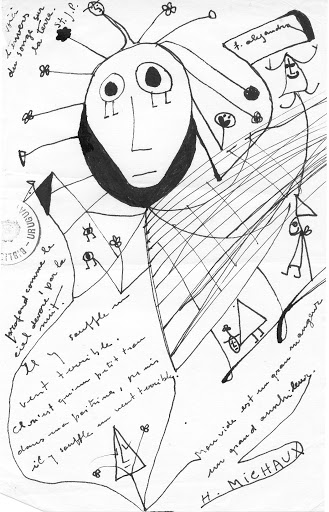 l'envers
du songe sur
la terre.
St. J. P.
f. alejandra
profond comme le
ciel dévoré par la
nuit.
Il y souffle un
vent terrible.
Ce n'est qu'un petit trou
dans ma poitrine, mais
il y souffle un vent terrible.
Mon vide est un grand mangeur
un grand
H. MICHAUX